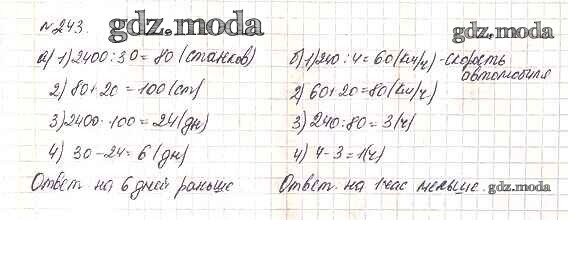 №243.
gdz.moda
gdz.moda
а) 1) 2400:30=80 (станков)
2) 80+20=100 (ст)
3) 2400·100=24 (дн)
4) 30-24=6 (дн)
Ответ на 6 дней раньше
б) 1) 240:4=60 (км/ч) - скорость
автомобиля
2) 60+20=80 (км/ч)
3) 240:80=3 (ч)
4) 4-3=1 (ч)
Ответ на 1 час меньше.
gdz.moda